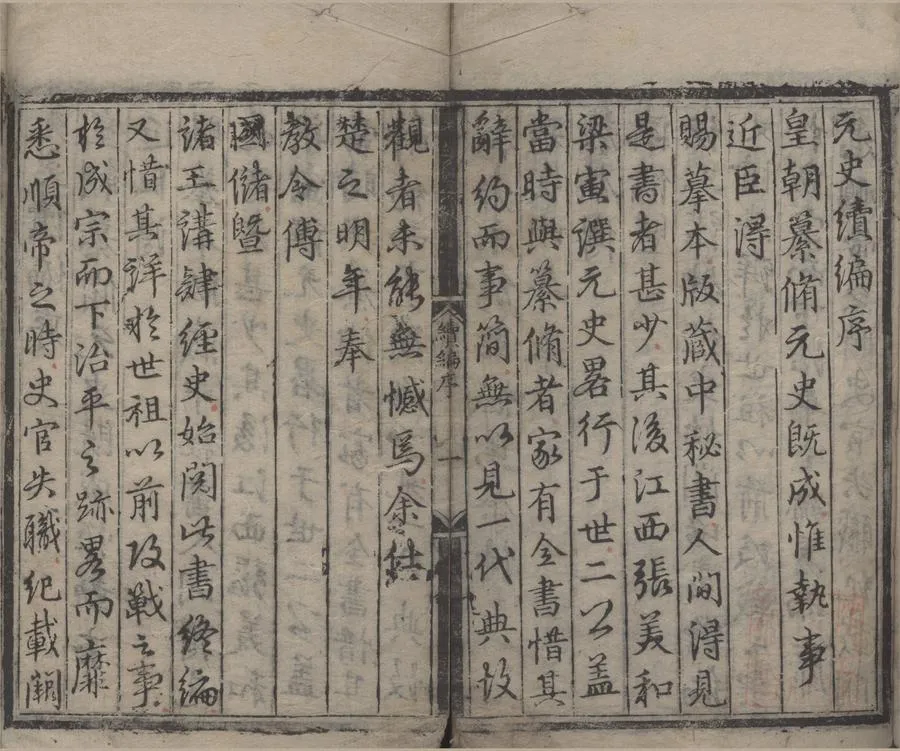 元史續編序
皇朝纂脩元史既成惟執事
近臣得
賜摹本版藏中秘書人間得見
是書者甚少其後江西張美和
梁寅譔元史畧行于世二公蓋
當時與纂脩者家有全書惜其
辭約而事簡無以見一代典故
續編序
一
觀者未能無憾焉余待
楚之明年奉
教令傅
國儲暨
諸王講肆經史始閱此書終編
又惜其詳於世祖以前攻戰之事
於成宗而下治平之跡畧而靡
悉順帝之時史官失職紀載闕